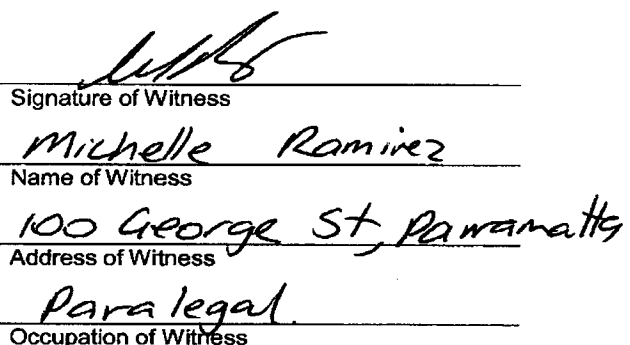 Signature of Witness
Michelle Ramirez
Name of Witness
100 George St, Parramatta
Address of Witness
Paralegal.
Occupation of Witness